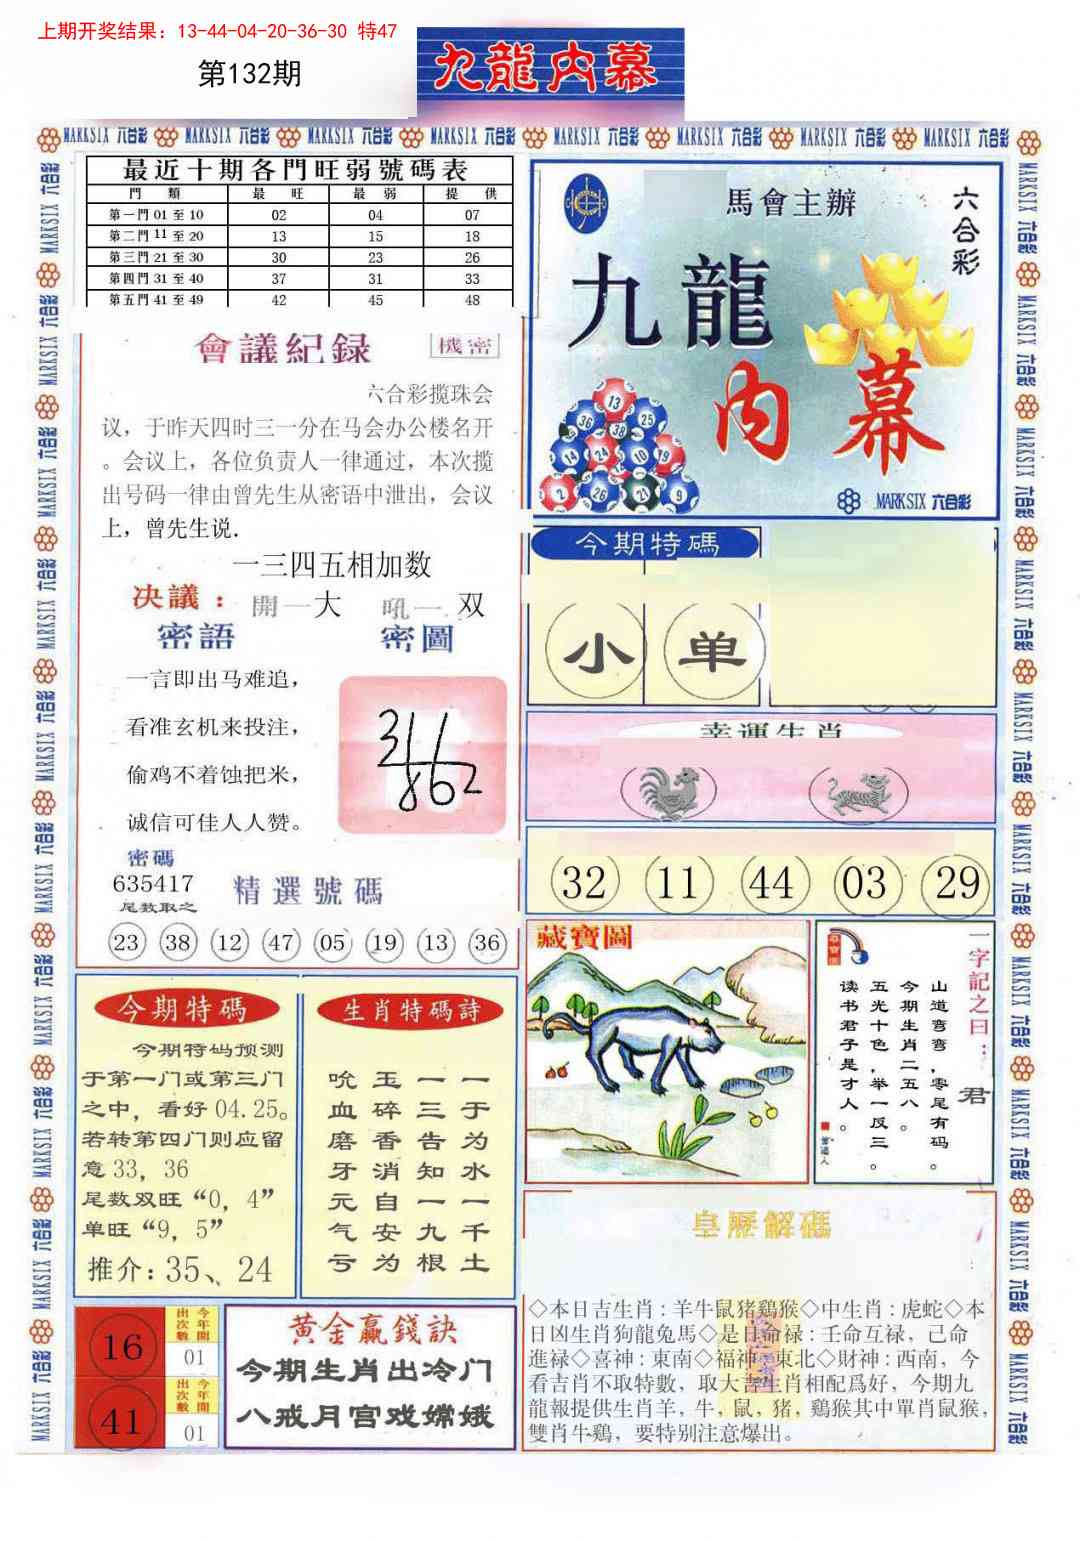 上期开奖结果：13-44-04-20-36-30 特47
第132期
九龍內幕
MARKSIX 六合彩 MARKSIX 六合彩 MARKSIX 六合彩 MARKSIX 六合彩 MARKSIX 六合彩 MARKSIX 六合彩 MARKSIX 六合彩 MARKSIX 六合彩
最近十期各門旺弱號碼表
門 類 最 旺 最 弱 提 供
第一門 01 至 10 02 04 07
第二門 11 至 20 13 15 18
第三門 21 至 30 30 23 26
第四門 31 至 40 37 31 33
第五門 41 至 49 42 45 48
會議紀録
機密
六合彩揽珠会
议，于昨天四时三一分在马会办公楼名开
。会议上，各位负责人一律通过，本次揽
出号码一律由曾先生从密语中泄出，会议
上，曾先生说.
一三四五相加数
决議： 開一大 吼一 双
密語
密圖
一言即出马难追，
看准玄机来投注，
偷鸡不着蚀把米，
诚信可佳人人赞。
密碼
635417
尾数取之
精選號碼
23 38 12 47 05 19 13 36
馬會主辦
六合彩
九龍
內幕
13
36 38 25
14 24 10 19
2 26 21 9
MARKSIX 六合彩
今期特碼
小 单
幸運生肖
32 11 44 03 29
藏寶圖
一字記之曰：君
山道弯弯，零尾有码。
今期生肖二五八。
五光十色，举一反三。
读书君子是才人。
今期特碼
今期特码预测
于第一门或第三门
之中，看好 04.25。
若转第四门则应留
意 33，36
尾数双旺“0，4”
单旺“9，5”
推介：35、24
生肖特碼詩
吮 玉 一 一
血 碎 三 于
磨 香 告 为
牙 消 知 水
元 自 一 一
气 安 九 千
亏 为 根 土
皇歷解碼
◇本日吉生肖：羊牛鼠猪鷄猴◇中生肖：虎蛇◇本
日凶生肖狗龍兔馬◇是日命禄：壬命互禄，己命
進禄◇喜神：東南◇福神：東北◇財神：西南，今
看吉肖不取特數，取大吉生肖相配爲好，今期九
龍報提供生肖羊，牛，鼠，猪，鷄猴其中單肖鼠猴，
雙肖牛鷄，要特别注意爆出。
16
今年開出次數
01
41
今年開出次數
01
黄金赢錢訣
今期生肖出冷门
八戒月宫戏嫦娥